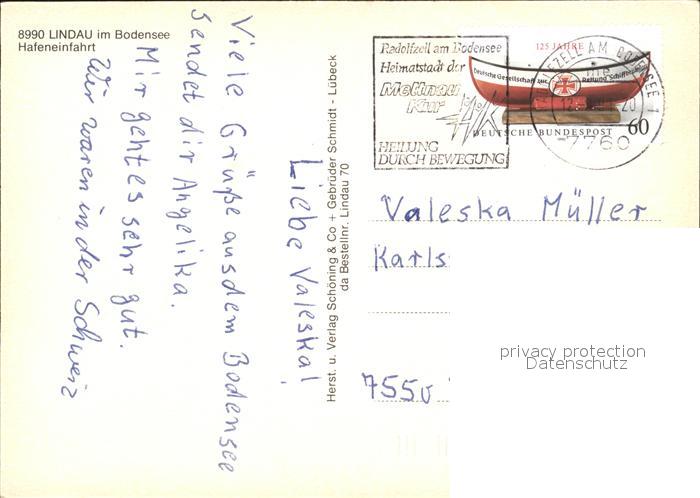 8990 LINDAU im Bodensee
Hafeneinfahrt
Liebe Valeska!
Viele Grüße aus dem Bodensee
sendet dir Angelika.
Mir geht es sehr gut.
Wir waren in der Schweiz
Herst. u. Verlag Schöning & Co + Gebrüder Schmidt - Lübeck
da Bestellnr. Lindau 70
Radolfzell am Bodensee
Heimatstadt der
Mettnau
Kur
HEILUNG
DURCH BEWEGUNG
125 JAHRE
Deutsche Gesellschaft zur Rettung Schiffbrüchiger
DEUTSCHE BUNDESPOST
60
7760
Valeska Müller
Karls
755
privacy protection
Datenschutz